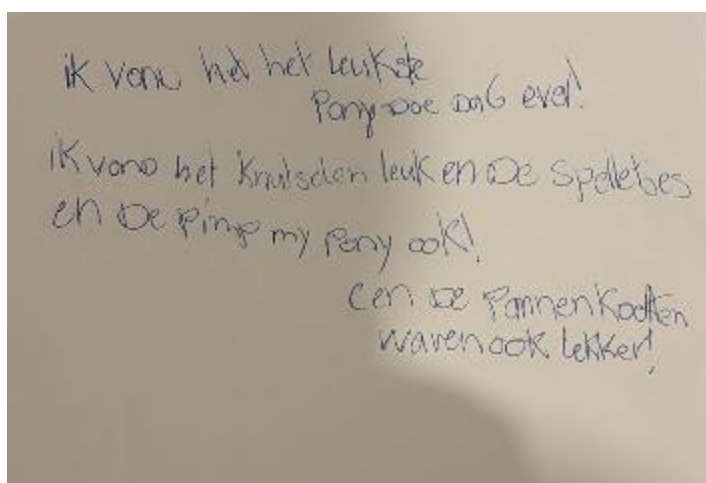 ik vond het het leukste
Pony Doe DaG ever!
ik vond het knutselen leuk en De spelletjes
en De Pimp my Pony ook!
en De Pannenkoeken
waren ook lekker!